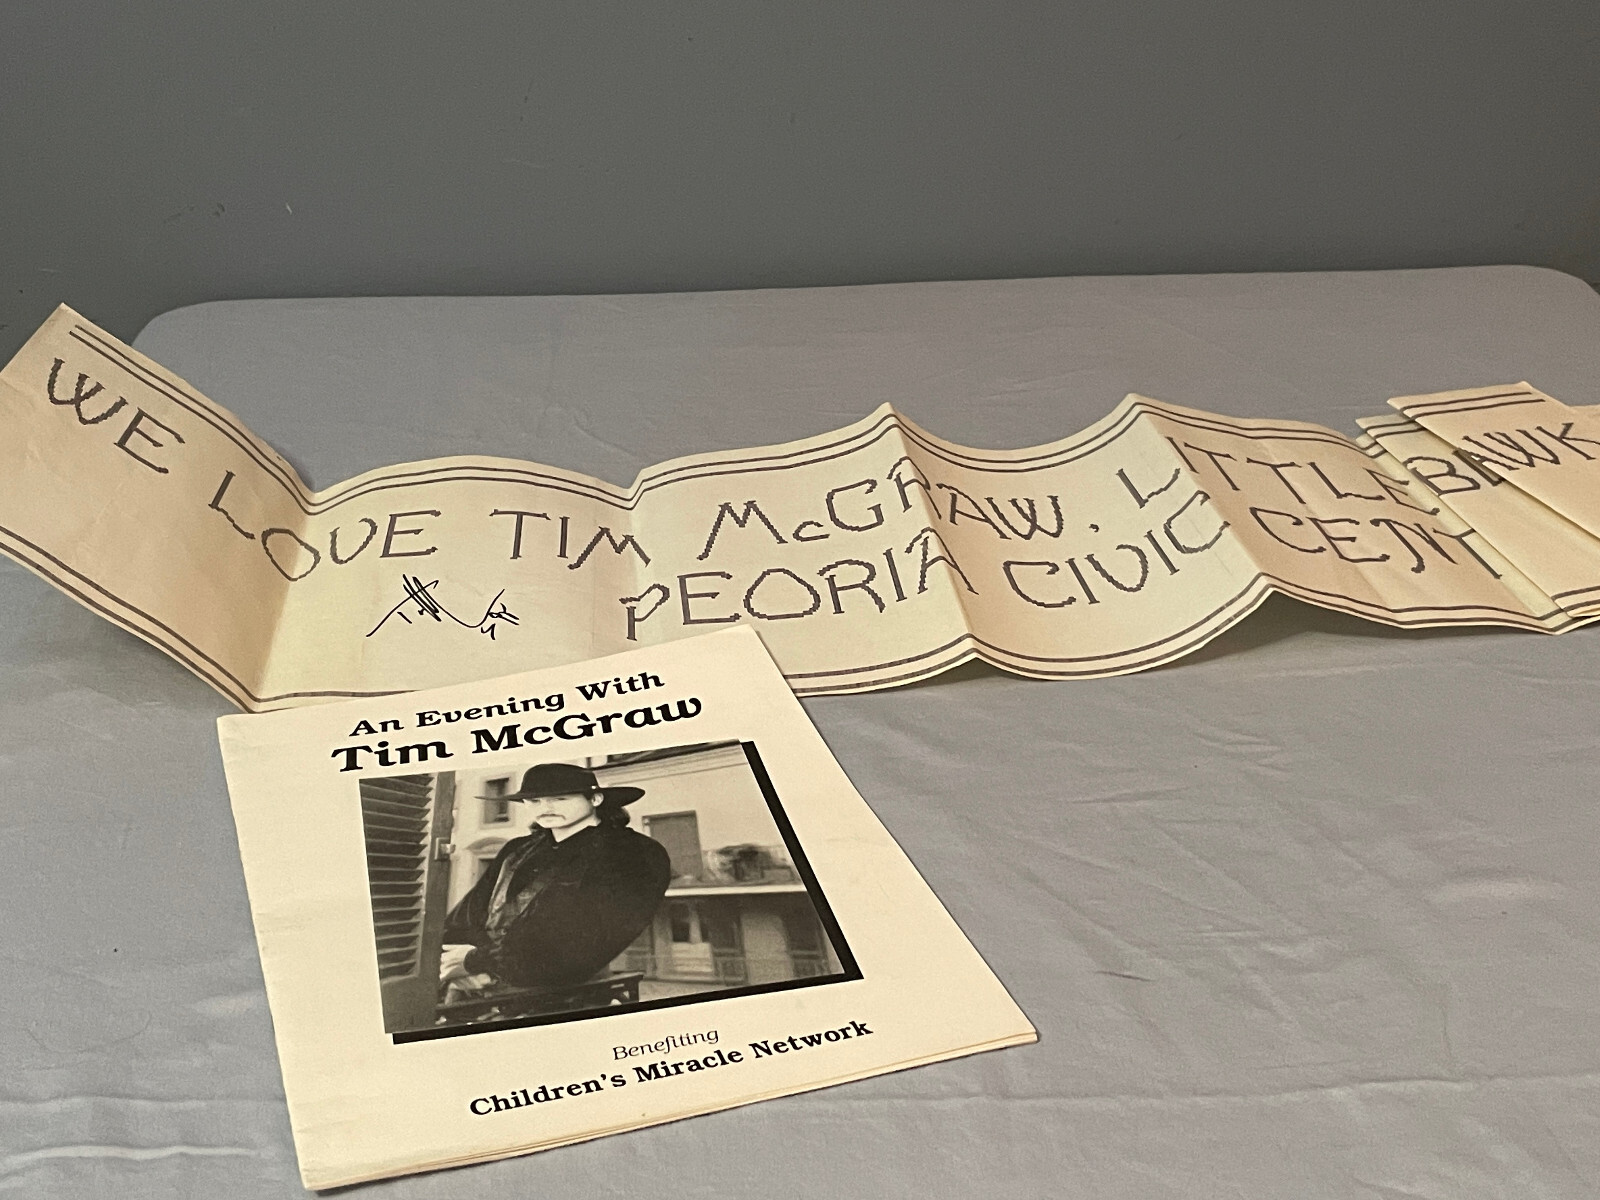 WE LOVE TIM McGRAW. LITTLE
PEORIA CIVIC CENT
An Evening With
Tim McGraw
Benefiting
Children's Miracle Network